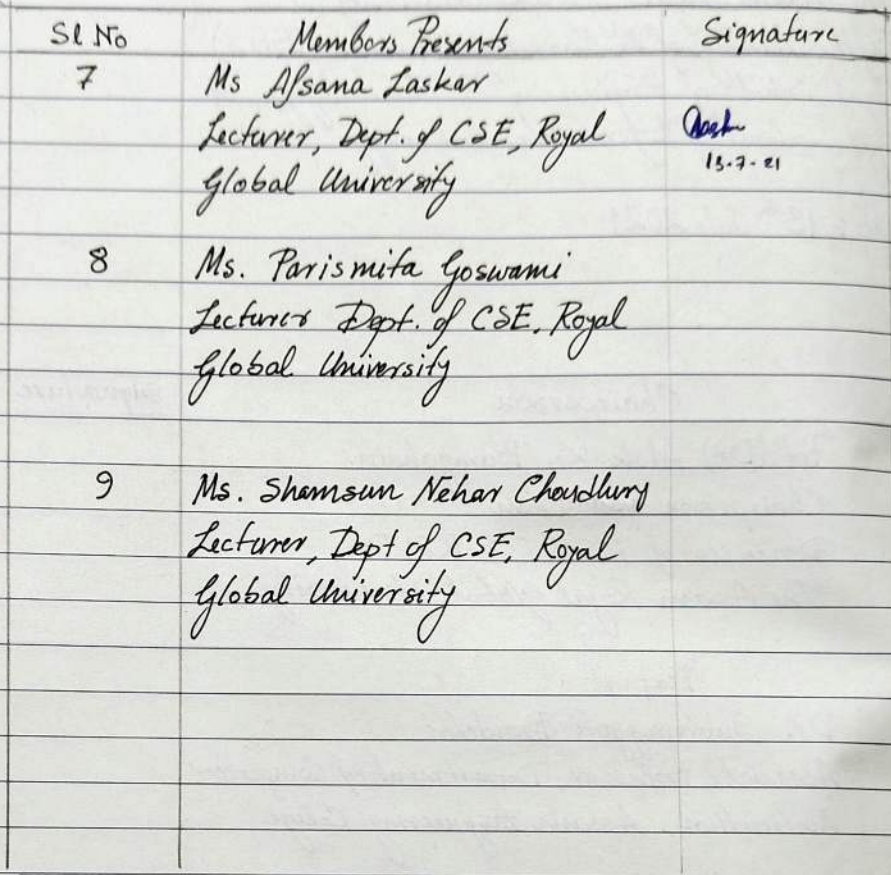 Sl No Members Presents Signature
7 Ms Afsana Laskar
Lecturer, Dept. of CSE, Royal
Global University
13-7-21
8 Ms. Parismita Goswami
Lecturer Dept. of CSE, Royal
Global University
9 Ms. Shamsun Nehar Choudhury
Lecturer, Dept of CSE, Royal
Global University